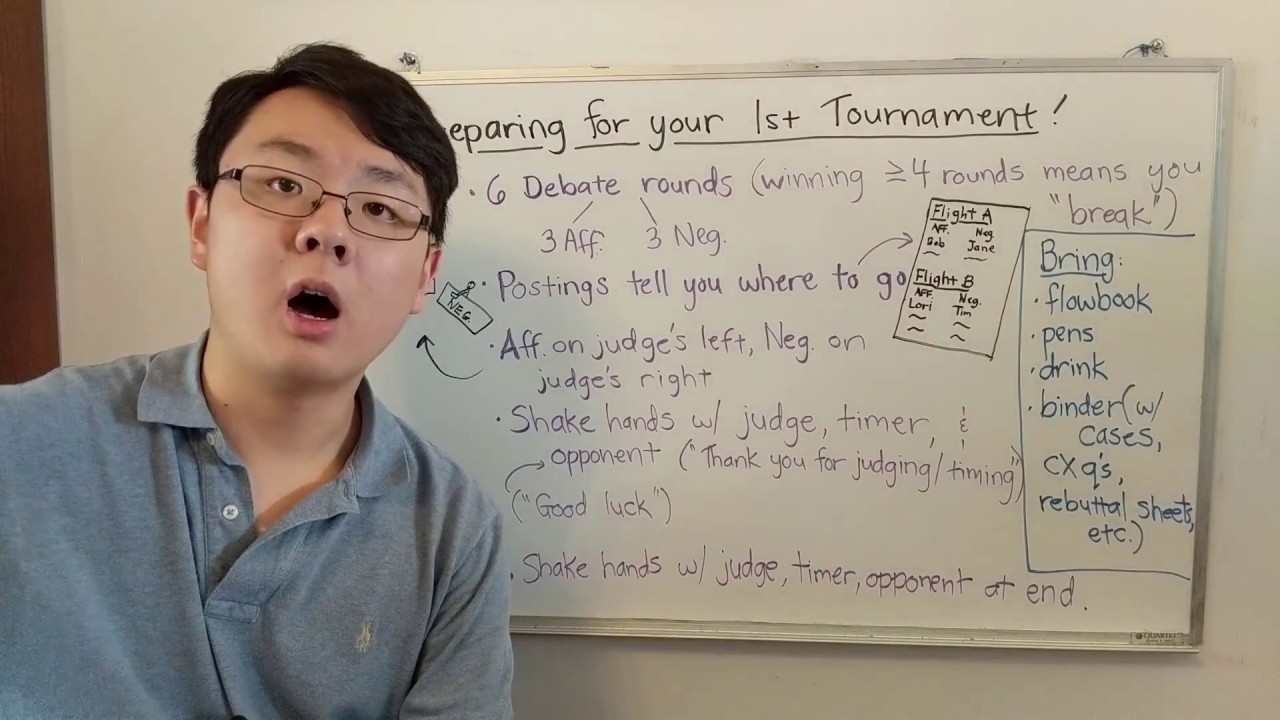 eparing for your 1st Tournament!
· 6 Debate rounds (winning ≥4 rounds means you
"break")
3 Aff. 3 Neg.
· Postings tell you where to go
· Aff. on judge's left, Neg. on
judge's right
· Shake hands w/ judge, timer, &
opponent ("Thank you for judging/timing")
("Good luck")
· Shake hands w/ judge, timer, opponent at end.
NEG.
Flight A
AFF. Neg
Bob Jane
Flight B
AFF. Neg.
Lori Tim
Bring:
· flowbook
· pens
· drink
· binder (w/
cases,
CX q's,
rebuttal sheets,
etc.)
QUARTET